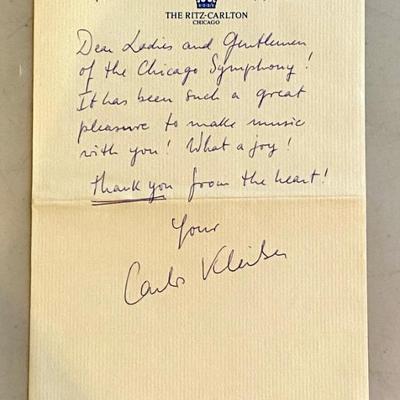 THE RITZ-CARLTON
CHICAGO
Dear Ladies and Gentlemen
of the Chicago Symphony!
It has been such a great
pleasure to make music
with you! What a joy!
Thank you from the heart!
Your
Carlos Kleiber